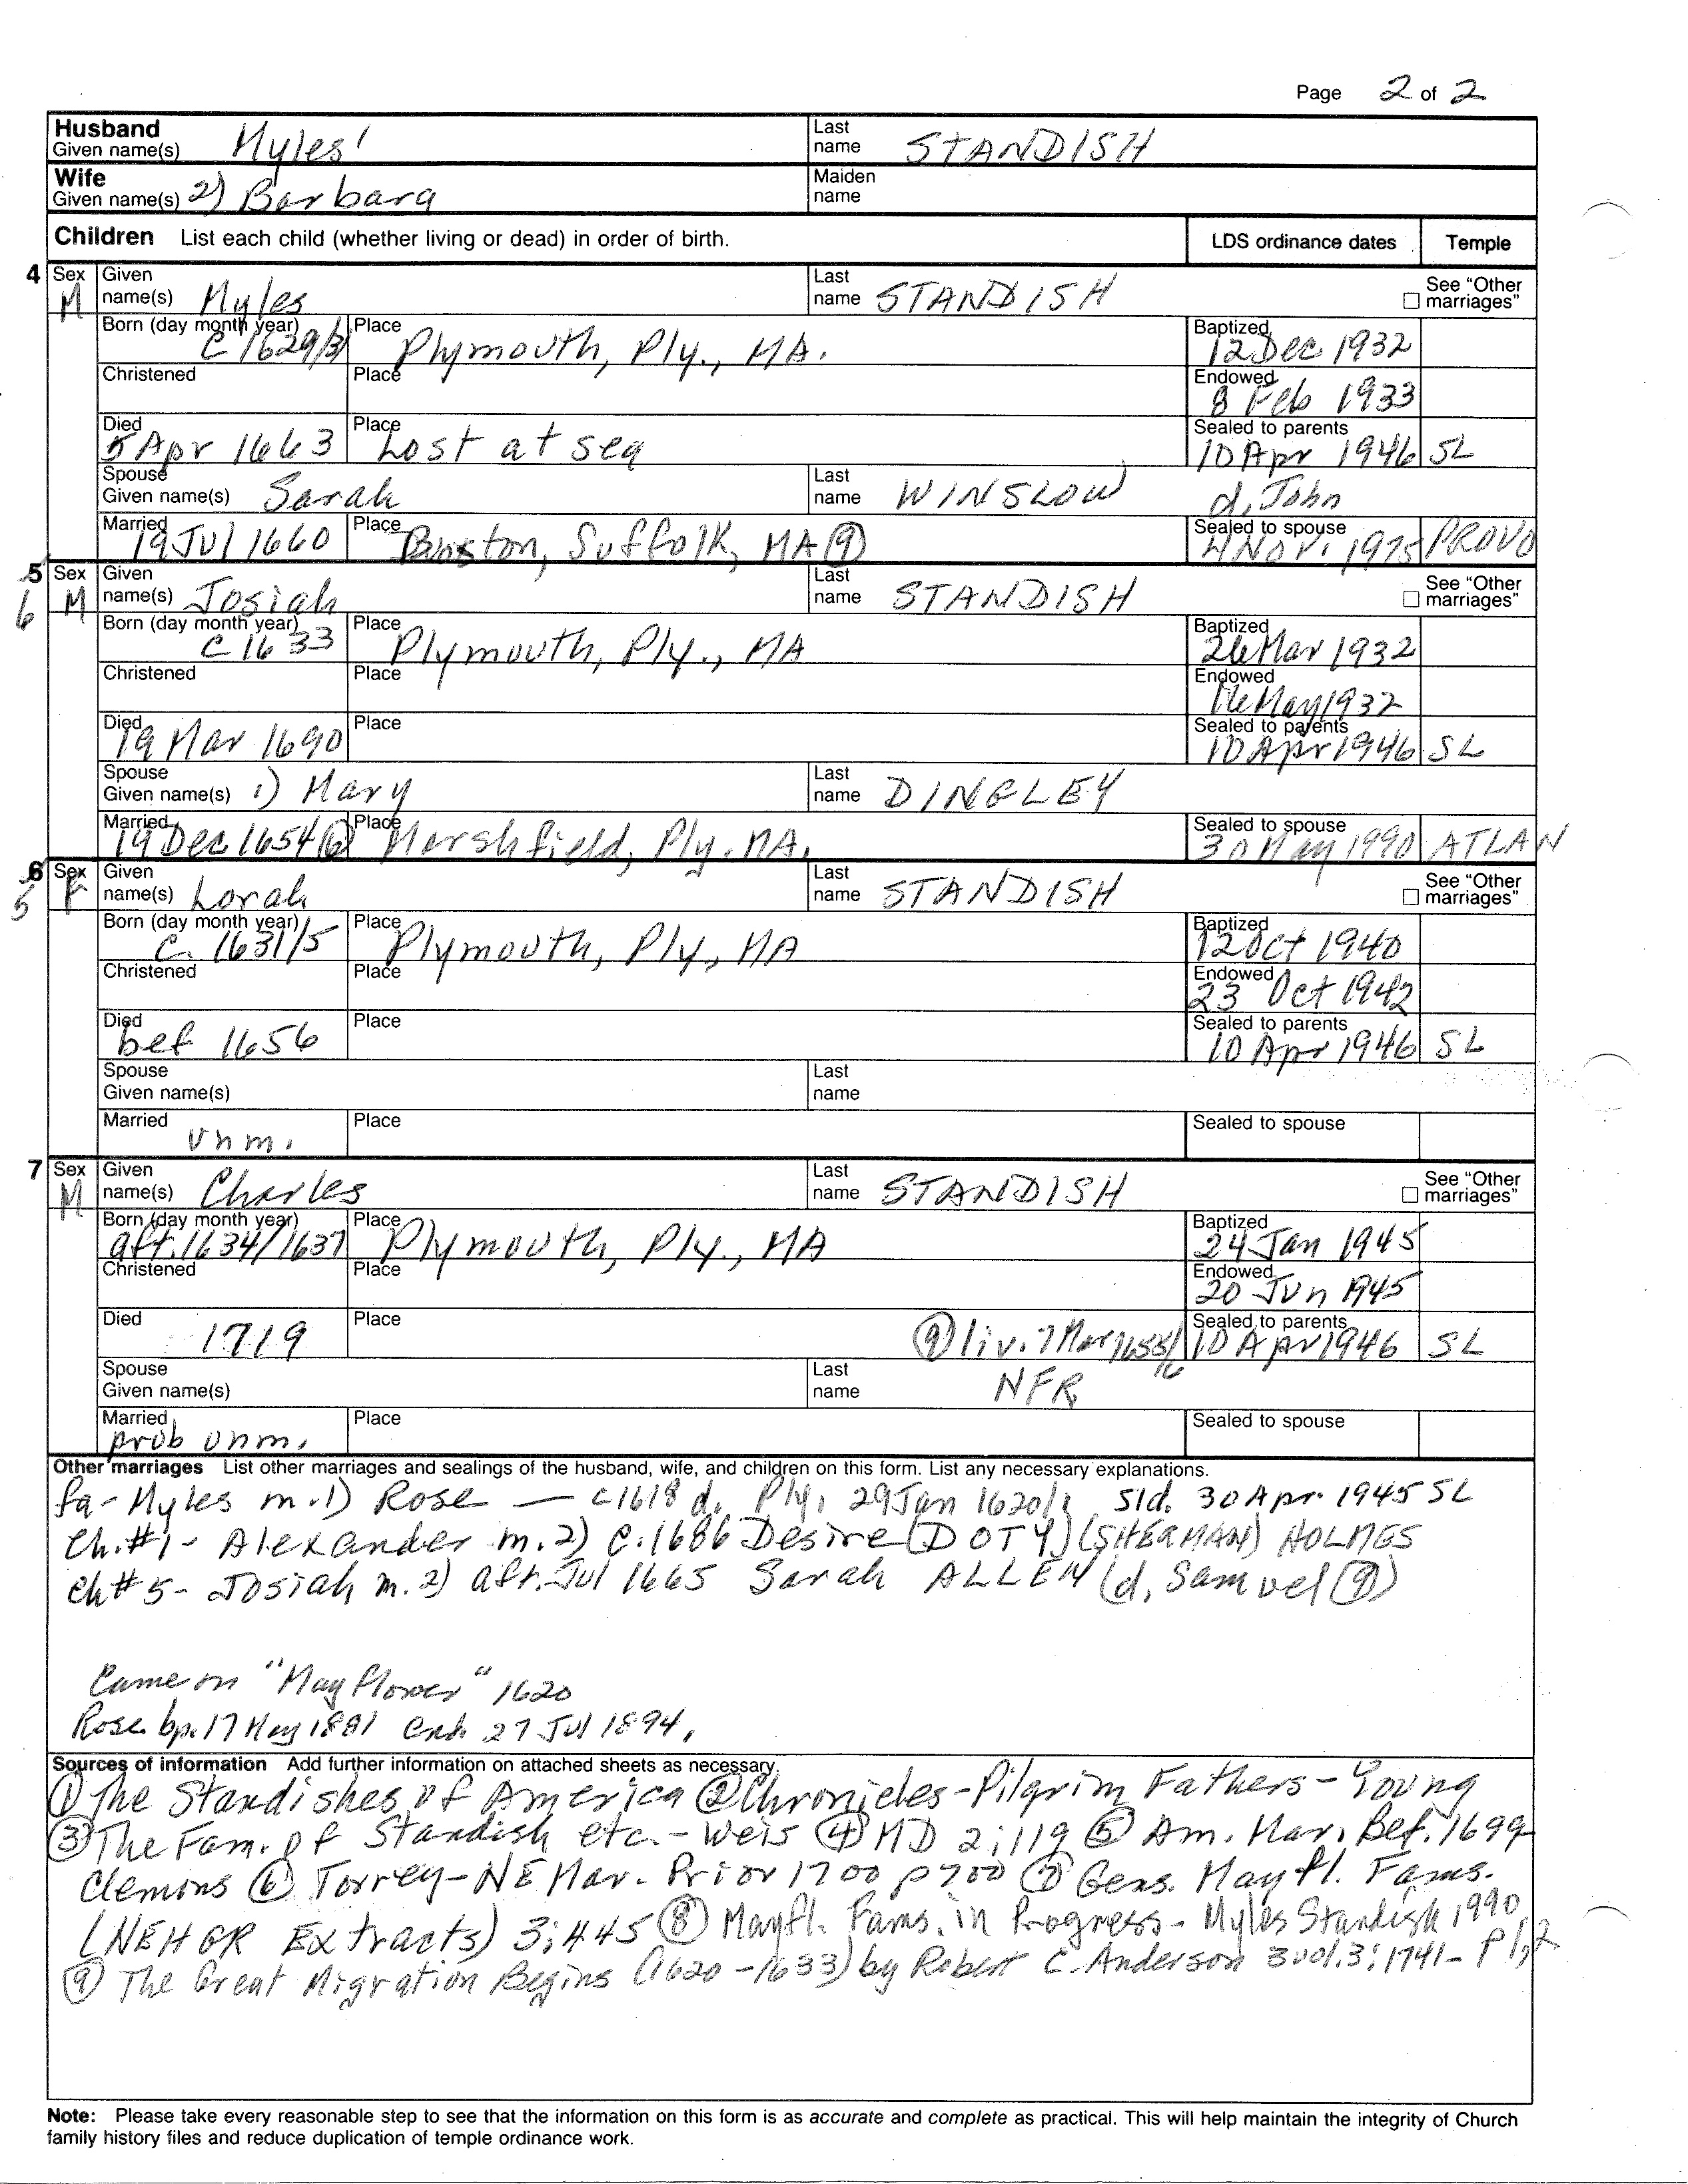 Page 2 of 2
Husband Given name(s) Myles' Last name STANDISH
Wife Given name(s) 2) Barbara Maiden name
Children List each child (whether living or dead) in order of birth. LDS ordinance dates Temple
4 Sex M Given name(s) Myles Last name STANDISH See "Other marriages"
Born (day month year) C 1629/31 Place Plymouth, Ply., MA. Baptized 12 Dec 1932
Christened Place Endowed 8 Feb 1933
Died 5 Apr 1663 Place Lost at sea Sealed to parents 10 Apr 1946 SL
Spouse Given name(s) Sarah Last name WINSLOW d. John
Married 19 Jul 1660 Place Boston, Suffolk, MA (9) Sealed to spouse 4 Nov. 1975 PROVO
5 6 Sex M Given name(s) Josiah Last name STANDISH See "Other marriages"
Born (day month year) C 1633 Place Plymouth, Ply., MA Baptized 26 Mar 1932
Christened Place Endowed 16 May 1932
Died 19 Mar 1690 Place Sealed to parents 10 Apr 1946 SL
Spouse Given name(s) 1) Mary Last name DINGLEY
Married 19 Dec 1654 (6) Place Marshfield, Ply. MA. Sealed to spouse 30 May 1990 ATLAN
6 5 Sex F Given name(s) Lorah Last name STANDISH See "Other marriages"
Born (day month year) C. 1631/5 Place Plymouth, Ply, MA Baptized 12 Oct 1940
Christened Place Endowed 23 Oct 1942
Died bef 1656 Place Sealed to parents 10 Apr 1946 SL
Spouse Given name(s) Last name
Married unm. Place Sealed to spouse
7 Sex M Given name(s) Charles Last name STANDISH See "Other marriages"
Born (day month year) aft. 1634/1637 Place Plymouth, Ply., MA Baptized 24 Jan 1945
Christened Place Endowed 20 Jun 1945
Died 1719 Place (9) liv. 7 Mar 1655/16 Sealed to parents 10 Apr 1946 SL
Spouse Given name(s) Last name NFR
Married prob unm. Place Sealed to spouse
Other marriages List other marriages and sealings of the husband, wife, and children on this form. List any necessary explanations.
fa - Myles m. 1) Rose — c1618 d. Ply. 29 Jan 1620/1 Sld. 30 Apr. 1945 SL
Ch. #1 - Alexander m. 2) C. 1686 Desire (DOTY) (SHERMAN) HOLMES
Ch # 5 - Josiah m. 2) aft. Jul 1665 Sarah ALLEN (d. Samuel (9))
Came on "Mayflower" 1620
Rose bp. 17 May 1881 End. 27 Jul 1894.
Sources of information Add further information on attached sheets as necessary.
(1) The Standishes of America (2) Chronicles - Pilgrim Fathers - Young
(3) The Fam. of Standish etc. - Weis (4) MD 2:119 (5) Am. Mar. Bef. 1699
Clemons (6) Torrey - NE Mar. Prior 1700 p 700 (7) Gens. Mayfl. Fams.
(NEHGR Extracts) 3:445 (8) Mayfl. Fams. in Progress - Myles Standish 1990 P 1,2
(9) The Great Migration Begins (1620-1633) by Robert C. Anderson 3 vol. 3:1741-
Note: Please take every reasonable step to see that the information on this form is as accurate and complete as practical. This will help maintain the integrity of Church
family history files and reduce duplication of temple ordinance work.